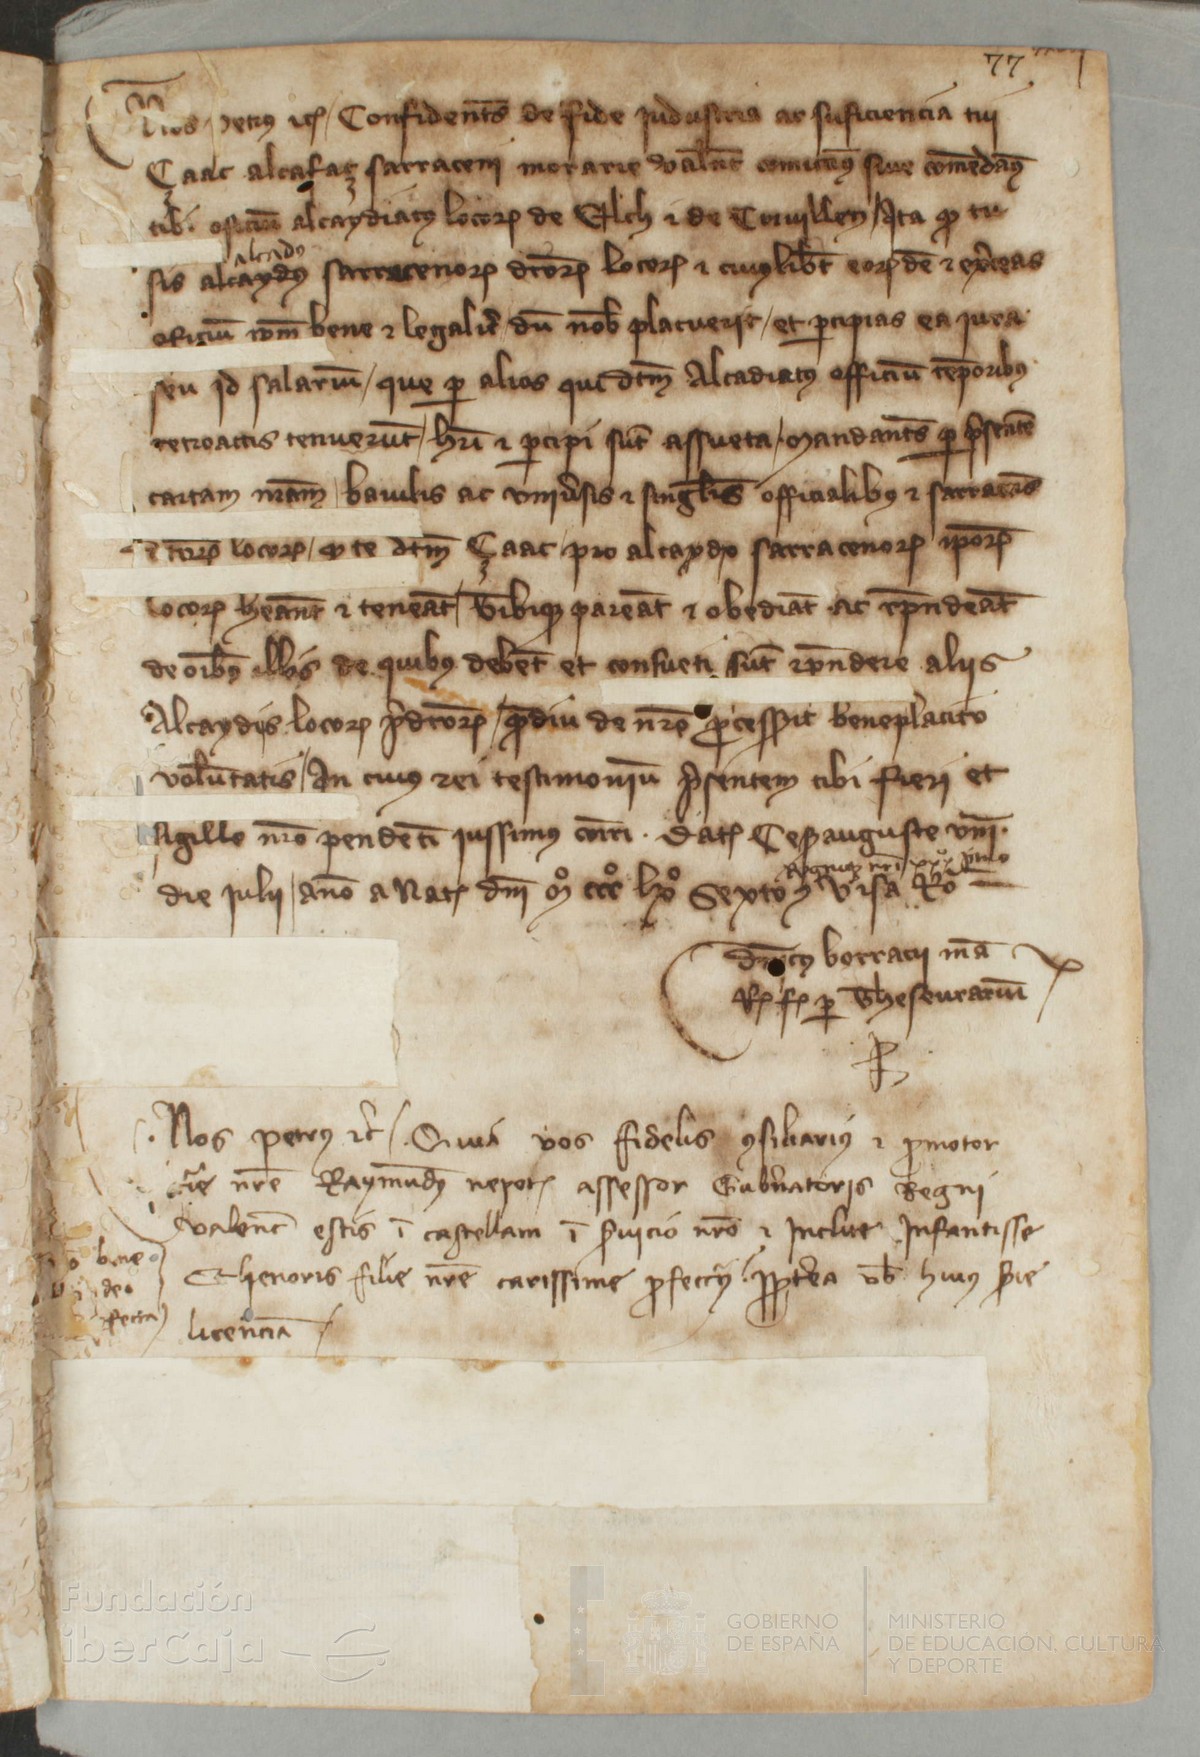 77
Nos Petrus etc / Confidentes de fide industria ac suficiencia tui
Çaat alcafaz sarraceni morarie Valent comittimus sive comendamus
tibi officium alcaydiatus locorum de Elch et de Crivillen / Ita quod tu
alcadus
sis alcaydus sarracenorum dictorum locorum et cuiuslibet eorumdem et exerceas
officium ipsum bene et legaliter / dum nobis placuerit / et percipias ea iura
seu id salarium / que per alios qui dictum Alcadiatus officium temporibus
retroactis tenuerunt / haberi et percipi sunt assueta / mandantes per presentem
cartam nostram / baiulis ac universis et singulis officialibus et sarracenis
dictorum locorum / quod te dictum Çaat / pro alcaydo sarracenorum ipsorum
locorum habeant et teneant / tibique pareant et obediant ac respondeant
de omnibus illis de quibus debent et consueti sunt respondere aliis
Alcaydis locorum predictorum / quamdiu de nostro processerit beneplacito
voluntatis / In cuius rei testimonium presentem tibi fieri et
sigillo nostro pendenti iussimus comuniri . Datum Cesarauguste VIII
die Julii / anno a Nat dni Mo CCCo LXo Sexto
Regnique nostri XXXo primo
Visa Ro
borracii mandato
Regis facto per Thesaurarium
P
Nos Petrus etc / Quia vos fidelis consiliarius et promotor
curie nostre Raymundus nepotis assessor Gubernatoris Regni
Valencie estis in castellam in servicio nostro et Inclite Infantisse
Elienoris filie nostre carissime profecturi / propterea vobis huius serie
licenciam /
bene
de
fecta
Fundación
iberCaja
GOBIERNO
DE ESPAÑA
MINISTERIO
DE EDUCACIÓN, CULTURA
Y DEPORTE